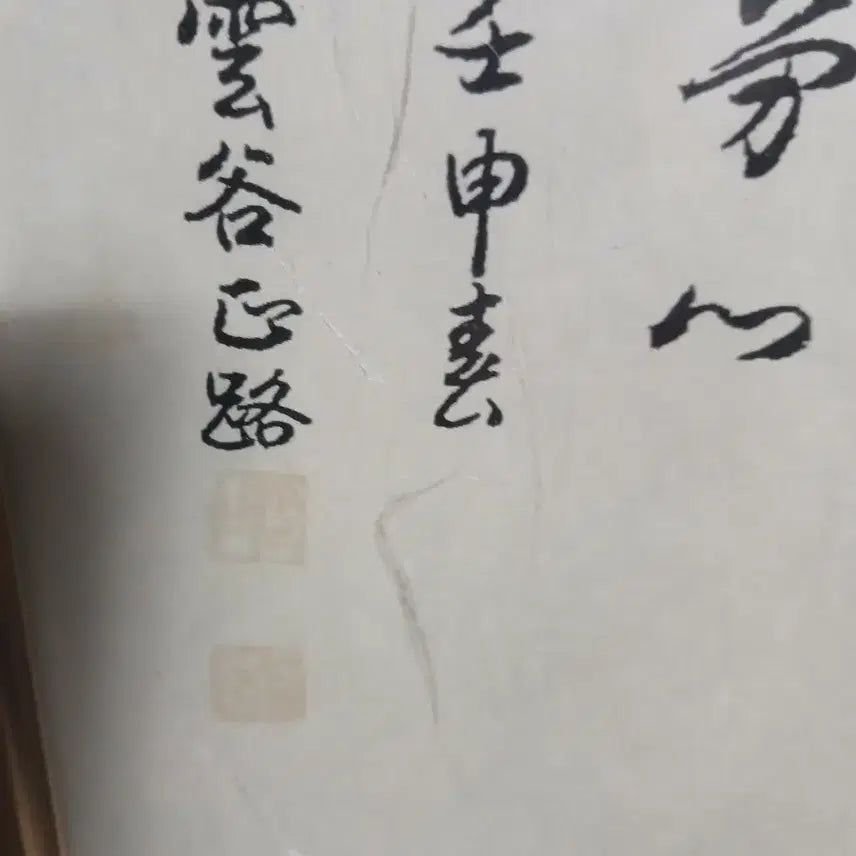 心
壬申春
雲谷正路